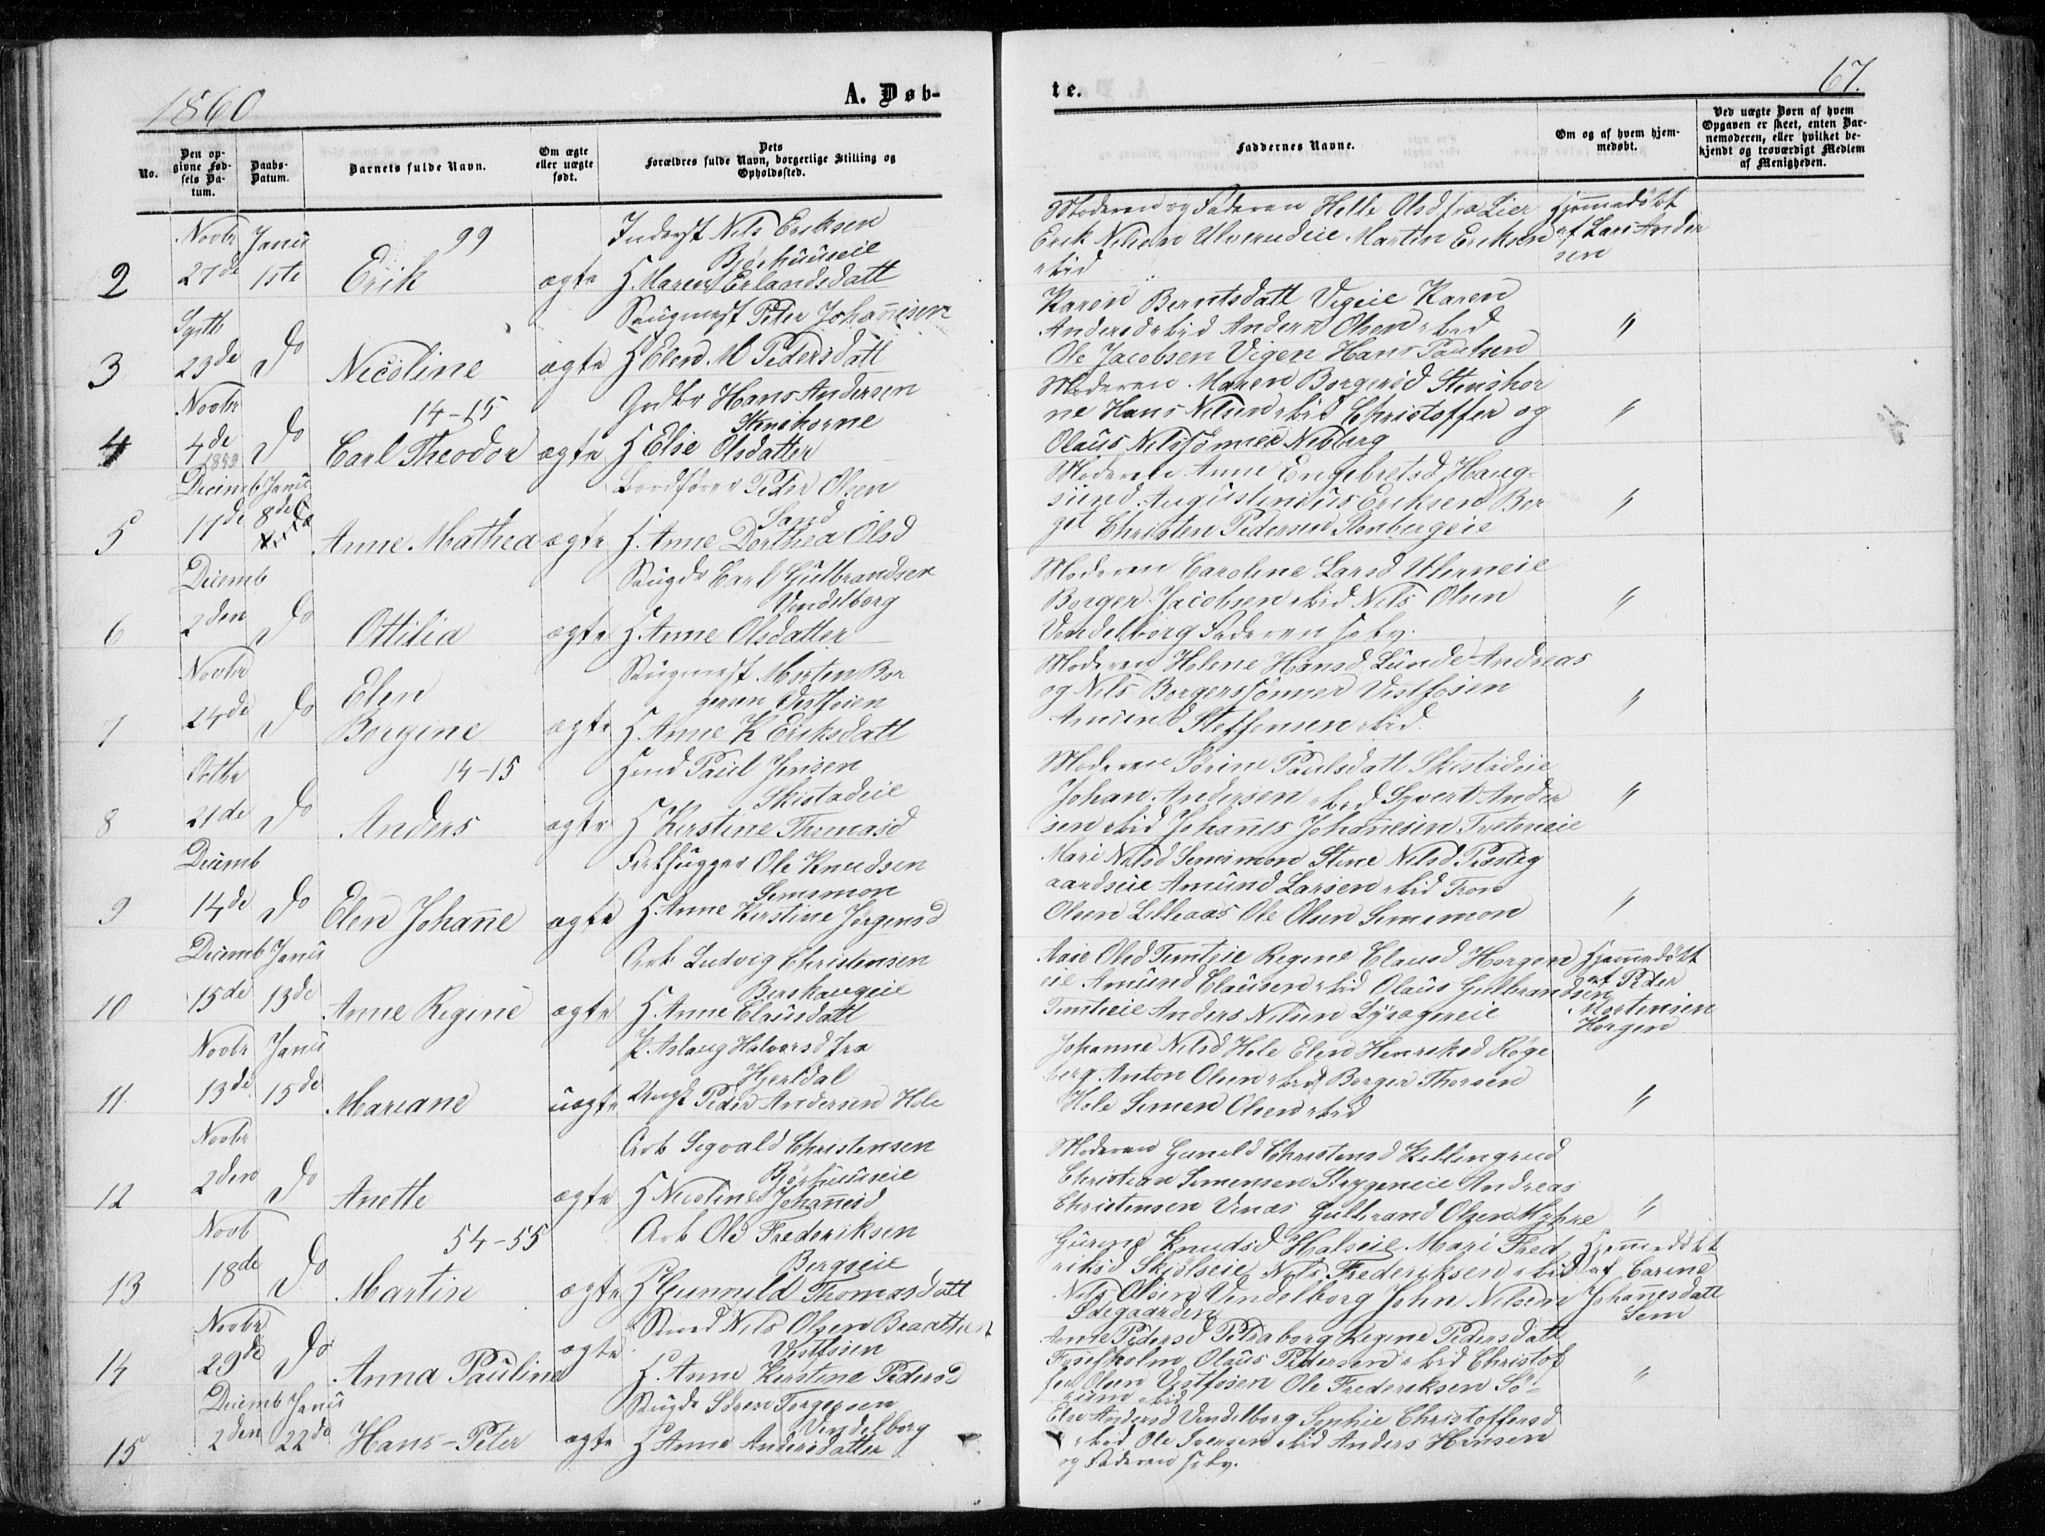 1860
A. Døb-
te.
67.
No.
Den op-
givne Fød-
sels Da-
tum.
Daabs-
Datum.
Barnets fulde Navn.
Om ægte
eller uægte
født.
Dets
Forældres fulde Navn, borgerlige Stilling og
Opholdssted.
Faddernes Navne.
Om og af hvem hjem-
medøbt.
Ved uægte Børn af hvem
Opgaven er skeet, enten Bar-
nemoderen, eller hvilket be-
kjendt og troværdigt Medlem
af Menigheden.
2
Novbr
27de
Janu
1ste
99
Erik
ægte
Inderst Nils Eriksen
Bjørhuuseie
H Maren Erlandsdatt
Moderen og Faderen Helle Olsd fra Lier
Erik Nilsen Ulverudeie Martin Eriksen
ibid
Hjemmedøbt
af Lars Ander
sen
3
Septb
23de
Do
Nicoline
ægte
Saugmest Peter Johannesen
H Elen M Pedersdatt
Karen Berntsdatt Vegeie Karen
Andersd ibid Anders Olsen ibid
Ole Jacobsen Vigen Hans Paulsen
"
4
Novbr
4de
1859
Do
14-15
Carl Theodor
ægte
Gdbr Hans Andersen
Stenshorne
H Else Olsdatter
Moderen Maren Borgersd Stenshor
ne Hans Nilsen ibid Christoffer og
Olaus Nilssønner Neberg
"
5
Decemb
17de
Janu
8de
Anne Mathea
ægte
Bordfører Peder Olsen
Sand
H. Anne Dorthea Olsd
Moderen Anne Engebretsd Haug-
sund Augustinius Eriksen Bor
get Christen Pedersen Stenbergeie
"
6
Decemb
2den
Do
Ottilia
ægte
Saugdr Carl Gulbrandsen
Vendelborg
H. Anne Olsdatter
Moderen Caroline Larsd Ulverneie
Borger Jacobsen ibid Nils Olsen
Vendelborg Faderen selv.
"
7
Novbr
24de
Do
Elen
Borgine
ægte
Saugmest Morten Bor
gersen Vestfosen
H. Anne K Eriksdatt
Moderen Helene Hansd Lunde Andreas
og Nils Borgerssønner Vestfosen
Amund Steffensen ibid.
"
8
Octbr
21de
Do
14-15
Anders
ægte
Husd Paul Jensen
Skistadeie
H Kirstine Thomasd
Moderen Sørine Paulsdatt Skistadeie
Johan Andersen ibid Syvert Ander
sen ibid Johannes Johannesen Tveteneie
"
9
Decemb
14de
Do
Elen Johanne
ægte
Ole Knudsen
Semsmoen
H. Anne Kirstine Jørgensd
Mari Nilsd Semsmoen Stine Nilsd Præsteg
aardseie Amund Larsen ibid Tron
Olsen Lillaas Ole Olsen Semsmoen
"
10
Decemb
15de
Janu
13de
Anne Regine
ægte
Arb Ludvig Christensen
Berskaugeie
H. Anne Clausdatt
Aase Olsd Temteie Regine Clausd Horgen
eie Amund Clausen ibid Olaus Gulbrandsen
Temteie Anders Nilsen Lysagereie
Hjemmedøbt
af Peder
Mortensen
Horgen
11
Novbr
13de
Janu
15de
Mariane
uægte
P. Aslaug Halvorsd fra
Hjertdal
Ungk Peder Andersen Hole
Johanne Nilsd Hole Elen Henriksd Røge
berg Anton Olsen ibid Borger Thorsen
Hole Semen Olsen ibid
"
12
Novbr
2den
Do
Anette
ægte
Arb Segvald Christensen
Bjørhuuseie
H Nicoline Johannesd
Moderen Gunild Christensd Kellingrud
Christian Semensen Strygeneie Andreas
Christensen Vinæs Gulbrand Olsen Myhre
"
13
Novb
18de
Do
54-55
Martin
ægte
Arb Ole Frederiksen
Bergseie
H Gunnild Thomasdatt
Gurine Knudsd Halseie Mari Fred
riksd Skjølseie Nils Frederiksen ibid
Nils Olsen Vendelborg John Nilsen
Ødegaarden
Hjemmedøbt
af Carine
Johannesdatt
Sem
14
Novbr
29de
Do
Anna Pauline
ægte
Smed Nils Olsen Braathen
Vestfosen
H. Anne Kirstine Pedersd
Anne Pedersd Petraborg Regine Pedersdatt
Fossesholm Olaus Pedersen ibid Christof
fer Olsen Vestfosen Ole Frederiksen
ibid
"
15
Decemb
2den
Janu
22de
Hans-Peter
ægte
Saugdr Søren Torgersen
Vendelborg
H. Anne Andersdatter
Else Andersd Vendelborg Sophie Christoffersd
ibid Ole Iversen ibid Anders Hansen
og Faderen selv.